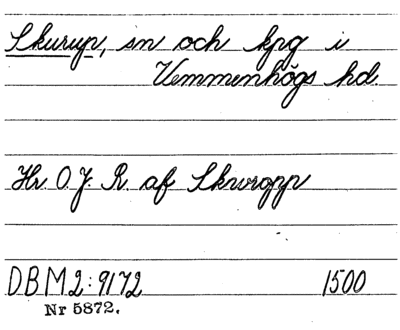 Skurup, sn och kpg i
Vemmenhögs hd.
Hr. O. J. R. af Skwrgpp
DBM2:9172 1500
Nr 5872.